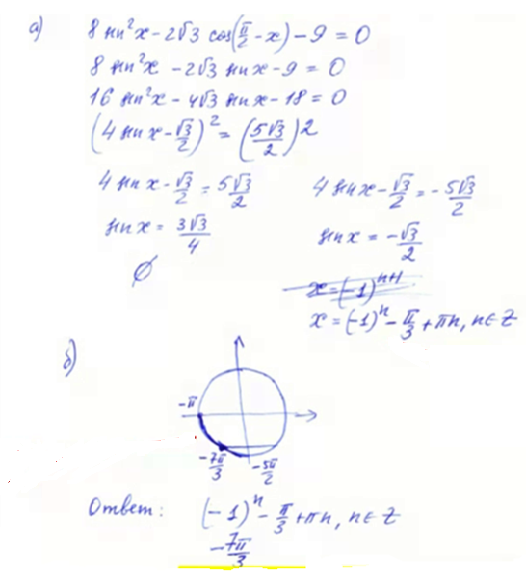 а) 8 sin²x - 2√3 cos(π/2 - x) - 9 = 0
8 sin²x - 2√3 sin x - 9 = 0
16 sin²x - 4√3 sin x - 18 = 0
(4 sin x - √3/2)² = (5√3/2)²
4 sin x - √3/2 = 5√3/2
sin x = 3√3/4
∅
4 sin x - √3/2 = - 5√3/2
sin x = - √3/2
x = (-1)ⁿ⁺¹
x = (-1)ⁿ - π/3 + πn, n ∈ Z
б)
-π
-7π/3
-5π/2
Ответ: (-1)ⁿ - π/3 + πn, n ∈ Z
-7π/3